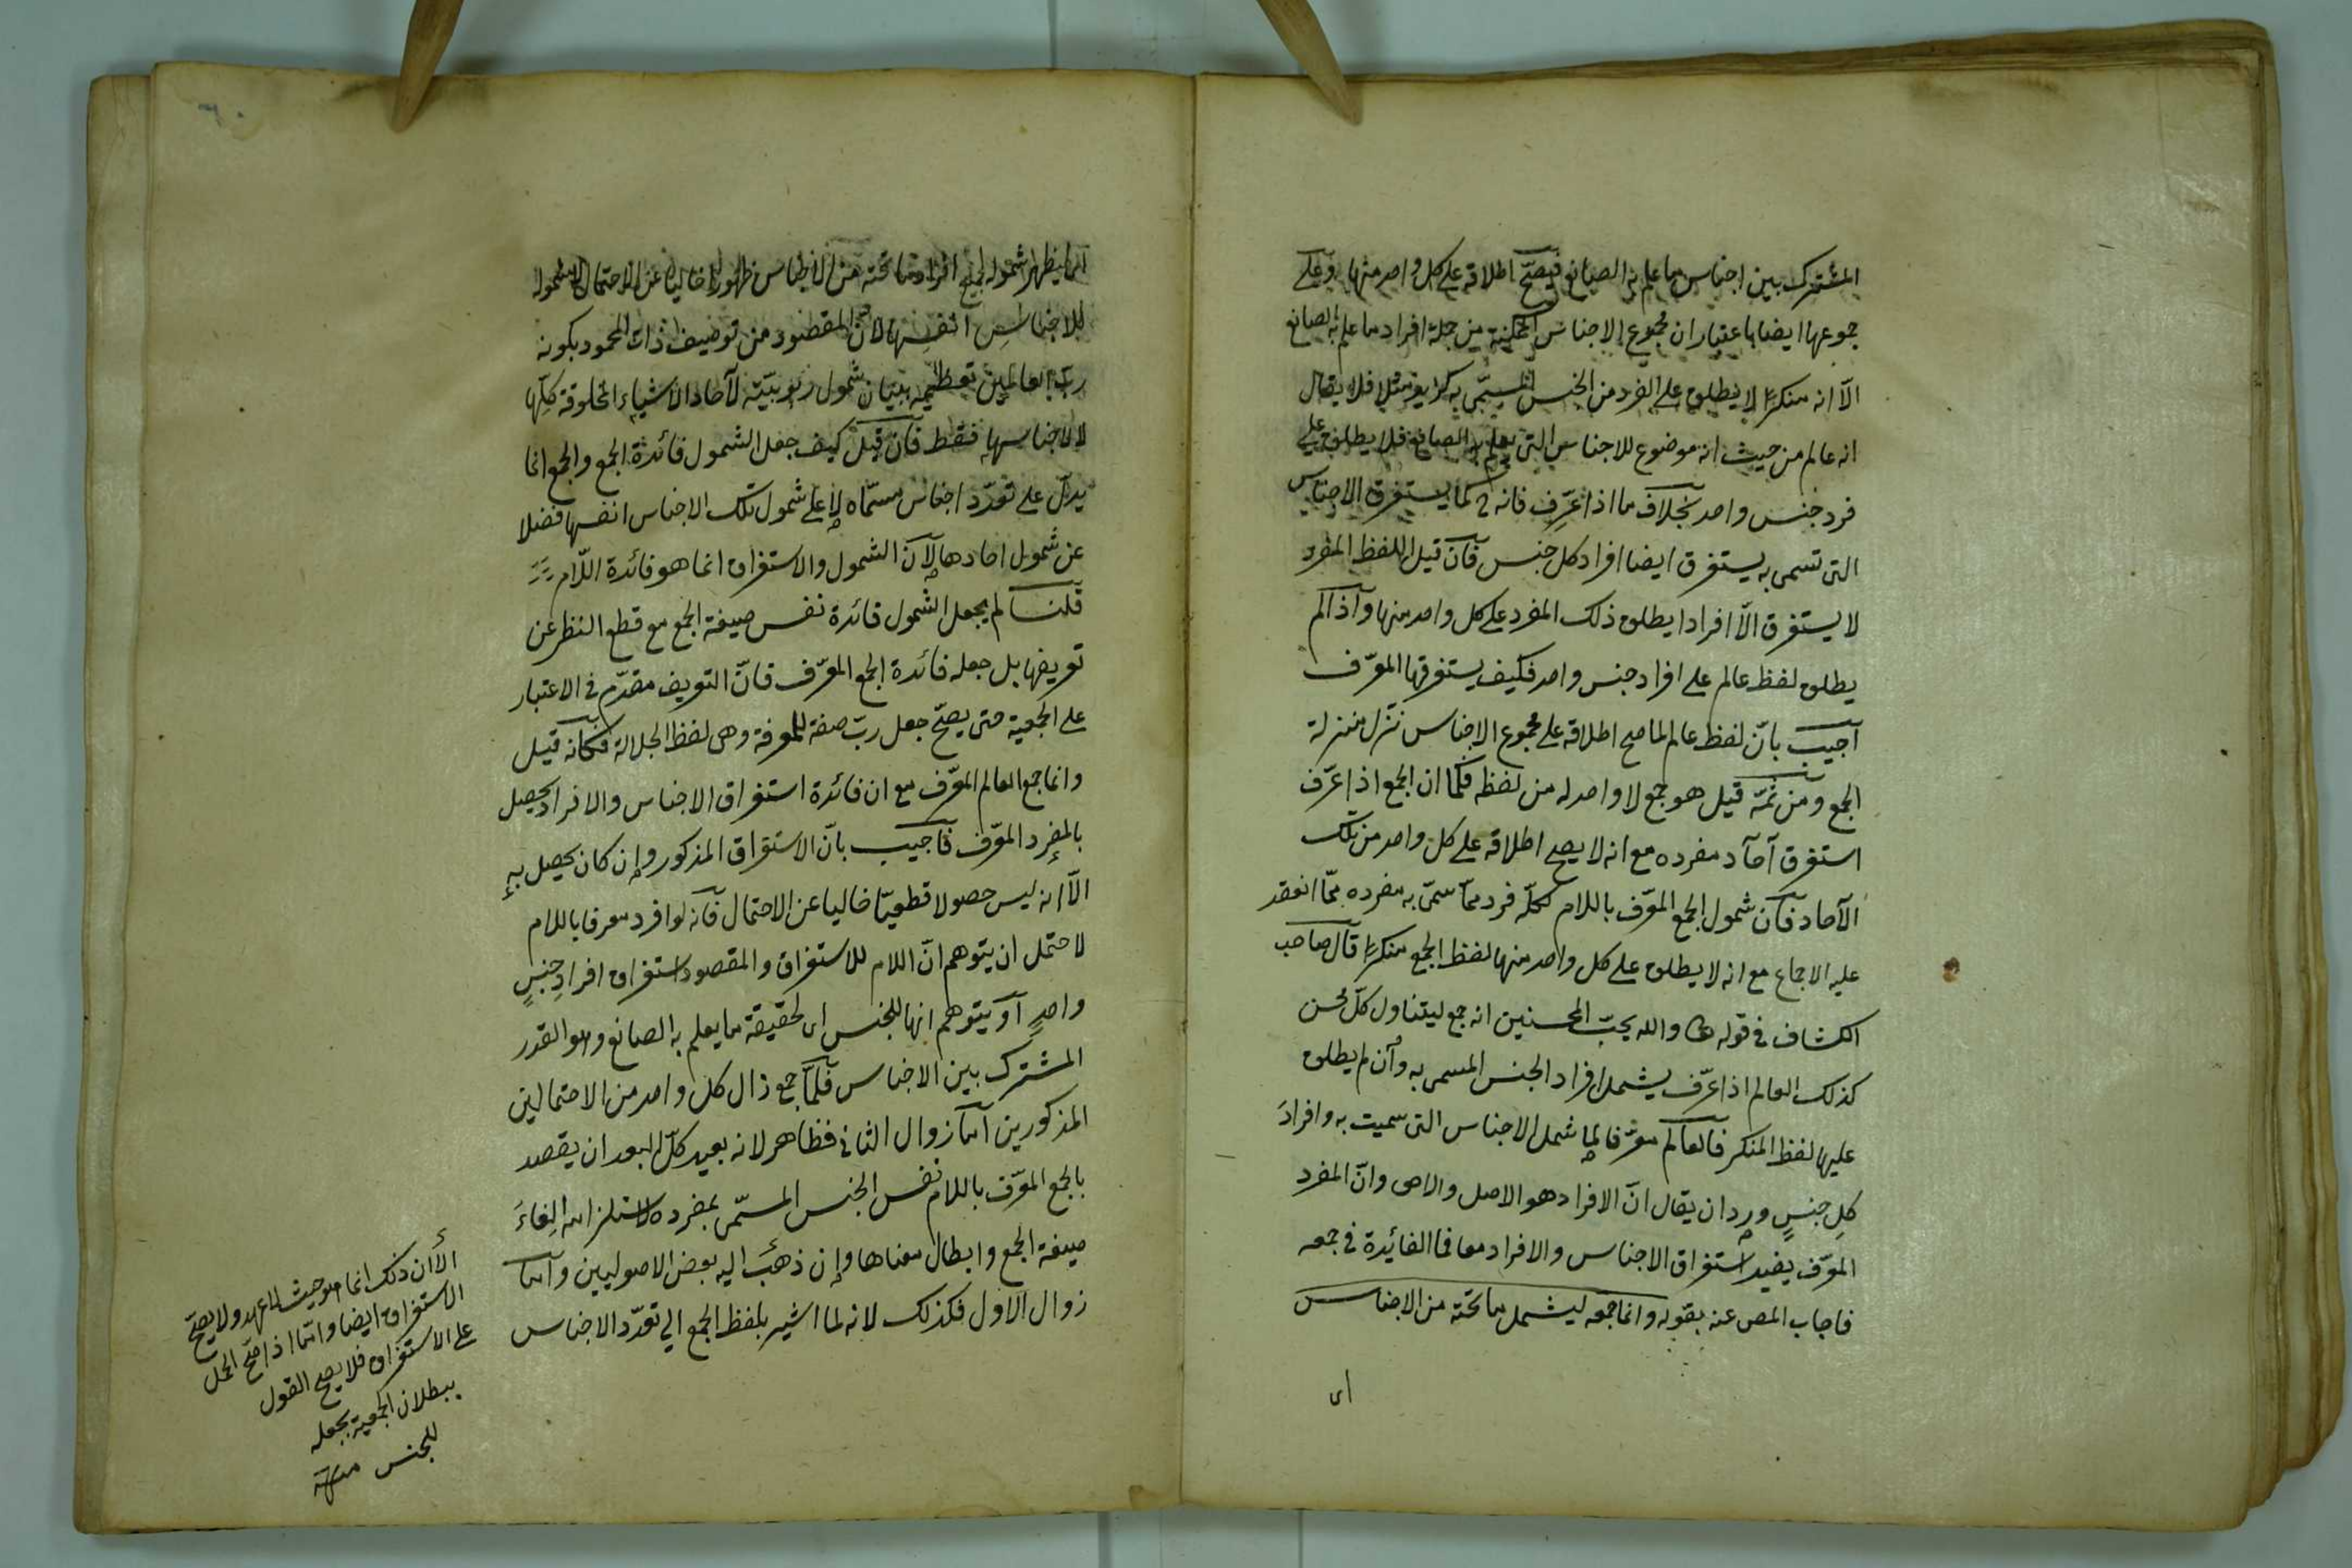 المشترك بين اجناس ما علم به الصانع فيصحّ اطلاقه على كل واحد منها وعلى
مجموعها ايضا باعتبار ان مجموع الاجناس الممكنة من جملة افراد ما علم به الصانع
الّا انه منكرًا لا يطلق على الفرد من الجنس المسمّى به كزيد مثلا فلا يقال
انه عالم من حيث انه موضوع للاجناس التى يعلم بها الصانع فلا يطلق على
فرد جنس واحد بخلاف ما اذا عرّف فانه ح كما يستغرق الاجناس
التى تسمى به يستغرق ايضا افراد كل جنس فان قيل اللفظ المفرد
لا يستغرق الّا افرادا يطلق ذلك المفرد على كل واحد منها واذا لم
يطلق لفظ عالم على افراد جنس واحد فكيف يستغرقها المعرّف
اجيب بانّ لفظ عالم لما صح اطلاقه على مجموع الاجناس نزّل منزلة
الجمع ومن ثمّه قيل هو جمع لا واحد له من لفظه فكما ان الجمع اذا عرّف
استغرق آحاد مفرده مع انه لا يصح اطلاقه على كل واحد من تلك
الآحاد فان شمول الجمع المعرّف باللام لكلّ فرد ممّا سمّى به مفرده ممّا انعقد
عليه الاجماع مع انه لا يطلق على كل واحد منها لفظ الجمع منكرًا قال صاحب
الكشاف فى قوله تعا والله يحبّ المحسنين انه جمع ليتناول كلّ محسن
كذلك العالم اذا عرّف يشمل افراد الجنس المسمى به وان لم يطلق
عليها لفظ المنكر فالعالم معرّفا لما شمل الاجناس التى سميت به وافرادَ
كلِ جنسٍ ورد ان يقال انّ الافراد هو الاصل والاخص وانّ المفرد
المعرّف يفيد استغراق الاجناس والافراد معا فما الفائدة فى جمعه
فاجاب المص عنه بقوله وانما جمعه ليشمل ما تحته من الاجناس
اى
انما يظهر شموله لجميع افراد ما تحته من الاجناس ظهورا خاليا عن الاحتمال لا شموله
للاجناسِ انفسِها لانّ المقصود من توصيف ذات المحمود بكونه
ربّ العالمين تعظيمه ببيان شمول ربوبيّته لآحاد الاشياء المخلوقة كلّها
لا لاجناسها فقط فان قيل كيف جعل الشمول فائدة الجمع والجمع انما
يدلّ على تعدّد اجناس مسمّاه لا على شمول تلك الاجناس انفسها فضلا
عن شمول احادها لانّ الشمول والاستغراق انما هو فائدة اللّام
قلنا لم يجعل الشمول فائدة نفس صيغة الجمع مع قطع النظر عن
تعريفها بل جعله فائدة الجمع المعرّف فانّ التعريف مقدّم فى الاعتبار
على الجمعية حتى يصحّ جعل ربّ صفة للمعرفة وهى لفظ الجلالة فكانه قيل
وانما جمع العالم المعرّف مع ان فائدة استغراق الاجناس والافراد يحصل
بالمفرد المعرّف فاجيب بانّ الاستغراق المذكور وإن كان يحصل بهِ
الّا انه ليس حصولا قطعيّا خاليا عن الاحتمال فانه لو افرد معرفا باللام
لاحتمل ان يتوهم انّ اللام للاستغراق والمقصود استغراق افرادِ جنسٍ
واحدٍ او يتوهم انها للجنس اى لحقيقة ما يعلم به الصانع وهو القدر
المشترك بين الاجناس فلمّا جمع زال كل واحد من الاحتمالين
المذكورين امّا زوال الثانى فظاهر لانه بعيد كلّ البعد ان يقصد
بالجمع المعرّف باللام نفس الجنس المسمّى بمفرده لاستلزامه الغاءَ
صيغة الجمع وابطال معناها وإن ذهَبَ اليه بعض الاصوليين وامّا
زوال الاول فكذلك لانه لما اشير بلفظ الجمع الى تعدّد الاجناس
الّا ان ذلك انما هو حيث لا عهد ولا يصحّ
الاستغراق ايضا وامّا اذا صحّ الحمل
على الاستغراق فلا يصح القول
ببطلان الجمعية بجعله
للجنس منه